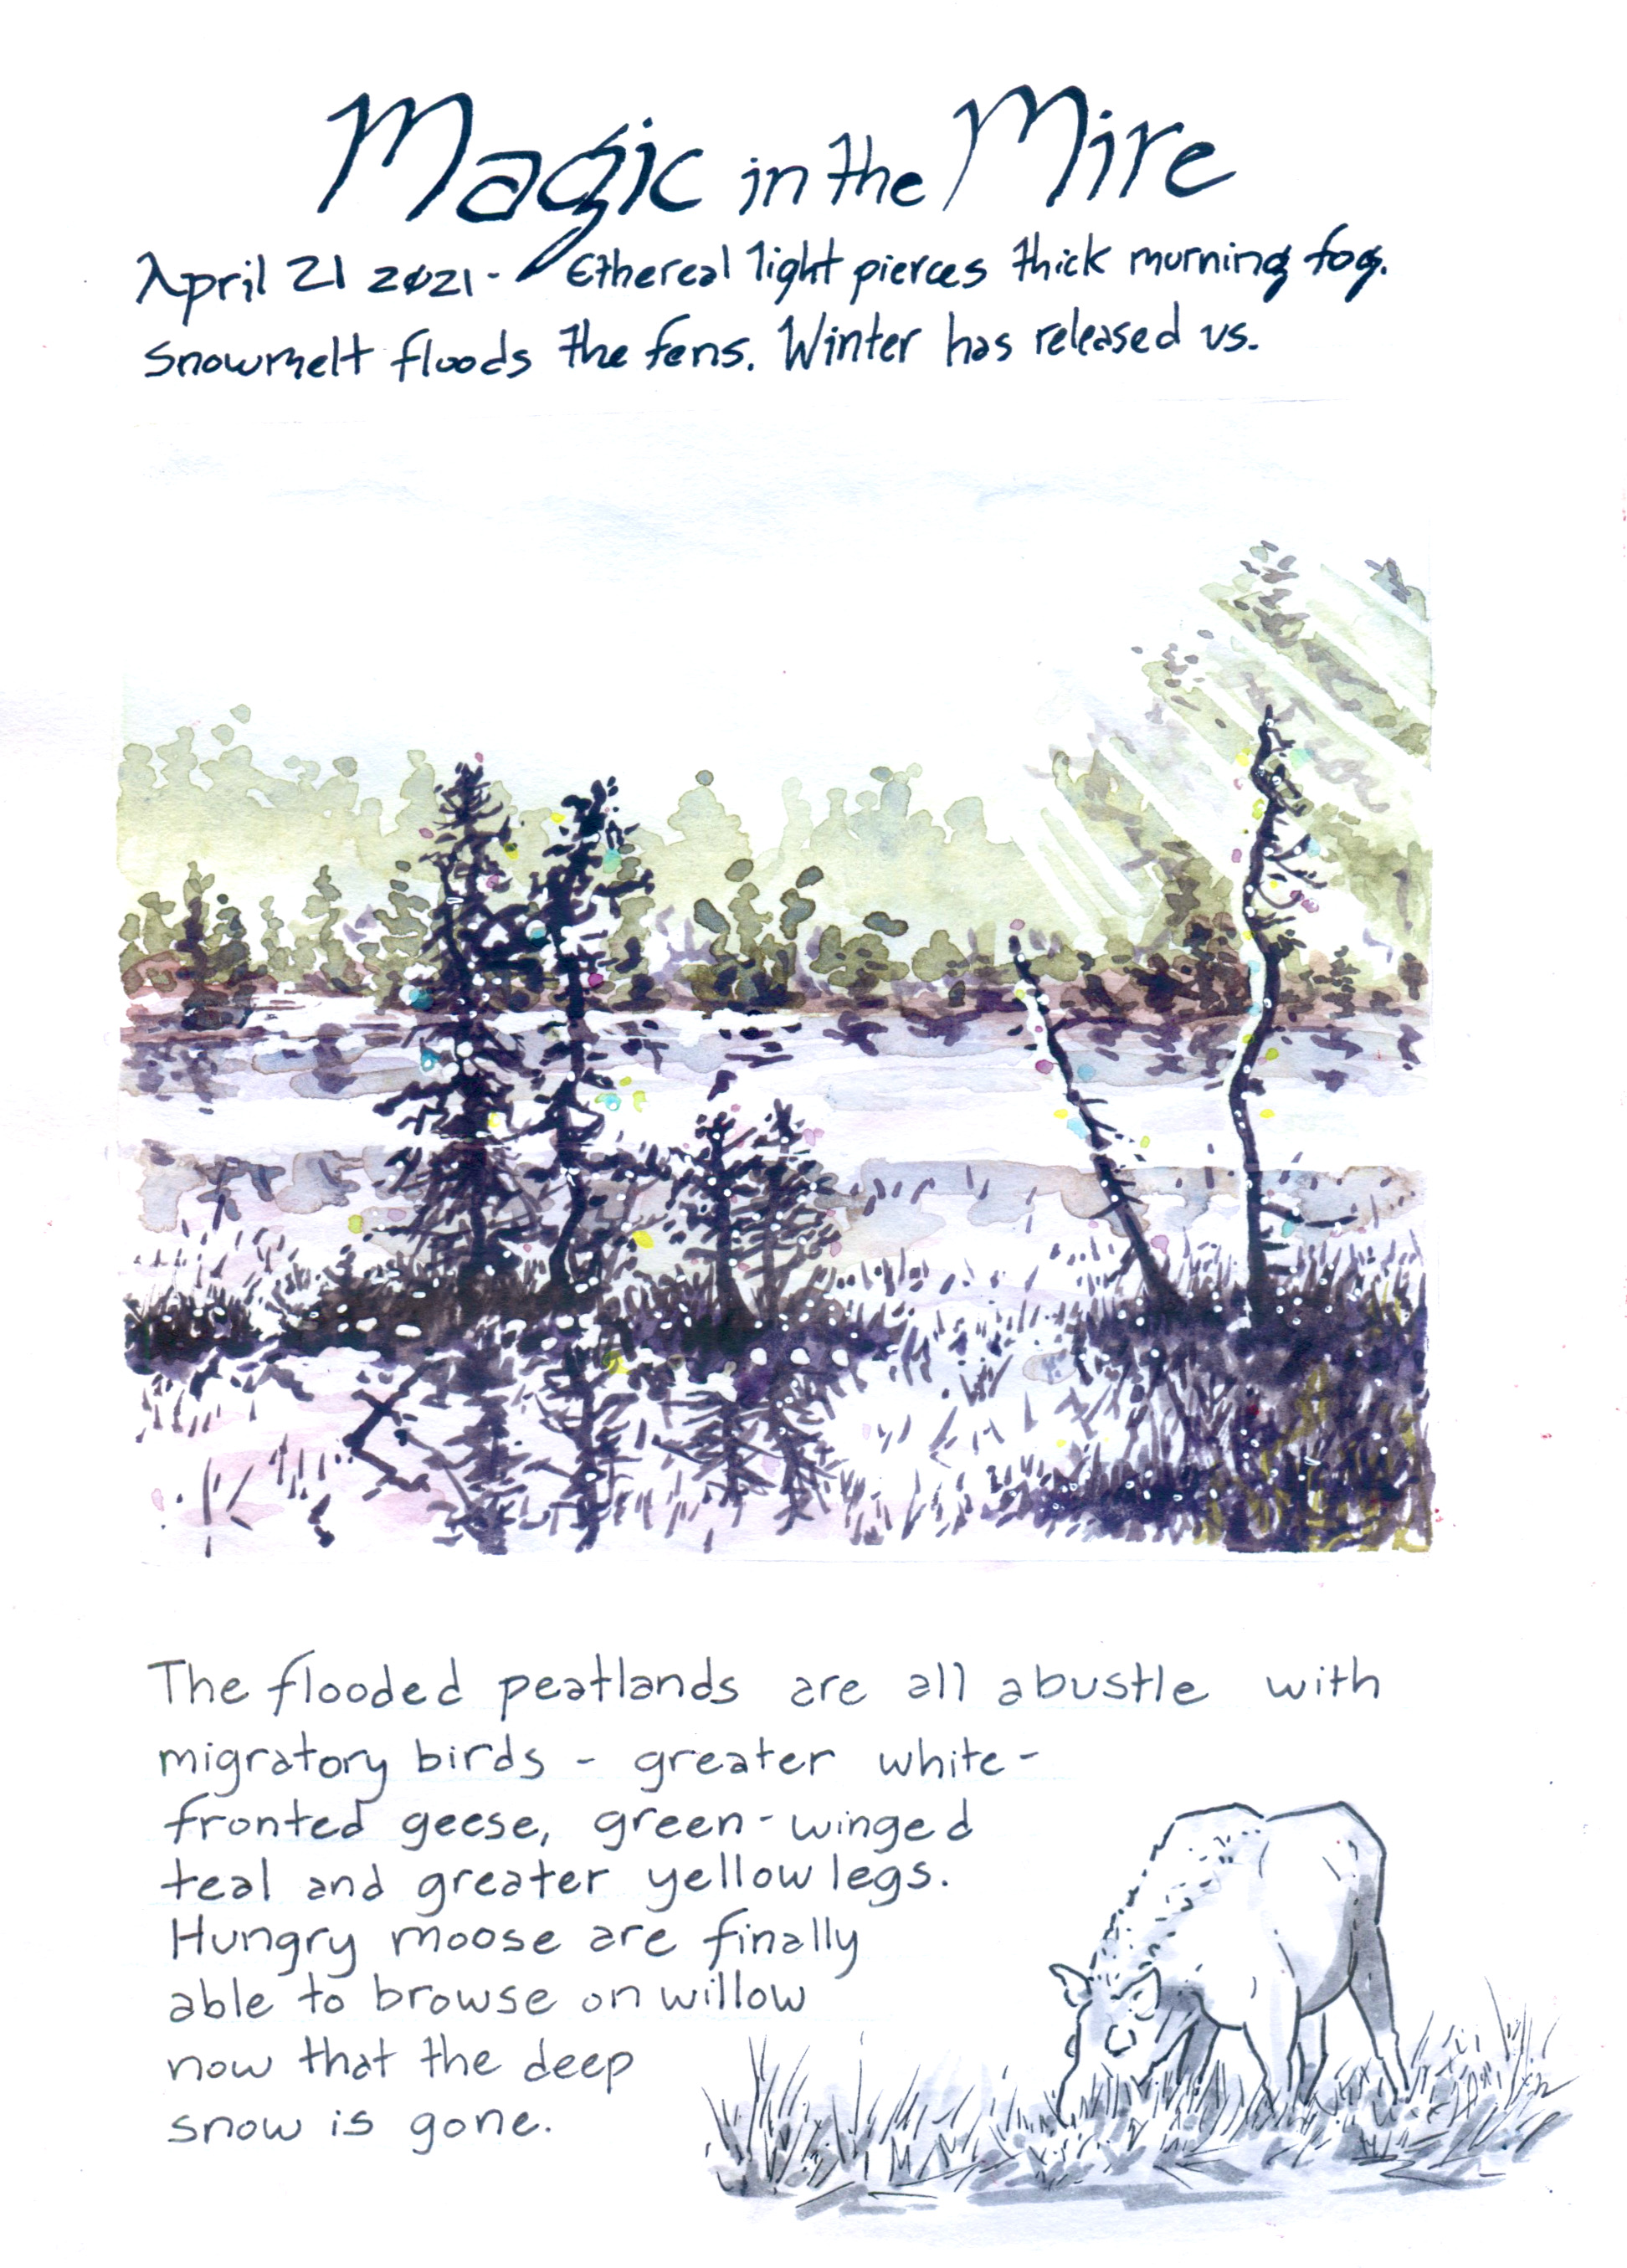 Magic in the Mire
April 21 2021 - Ethereal light pierces thick morning fog.
Snowmelt floods the fens. Winter has released us.
The flooded peatlands are all abustle with
migratory birds - greater white-
fronted geese, green-winged
teal and greater yellowlegs.
Hungry moose are finally
able to browse on willow
now that the deep
snow is gone.